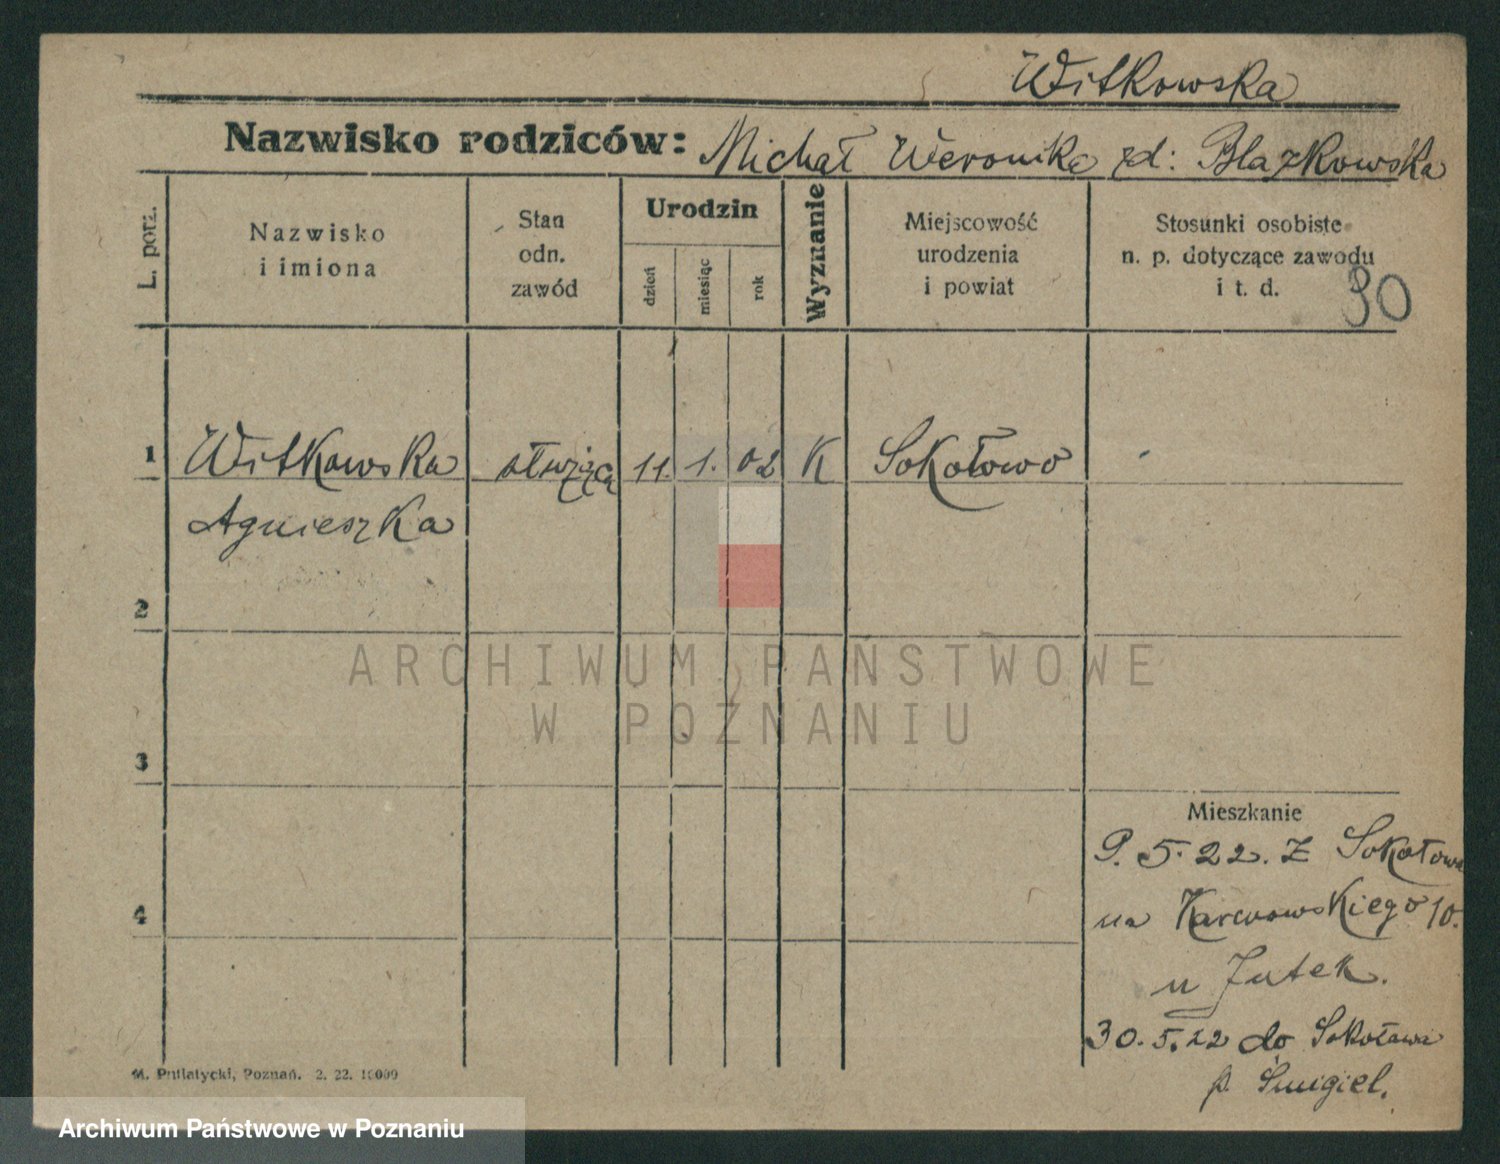 Witkowska
Nazwisko rodziców: Michał Weronika zd: Blazkowska
L. porz.
Nazwisko
i imiona
Stan
odn.
zawód
Urodzin
dzień
miesiąc
rok
Wyznanie
Miejscowość
urodzenia
i powiat
Stosunki osobiste
n. p. dotyczące zawodu
i t. d.
30
1 Witkowska służąca 11. 1. 02 K Sokołowo
Agnieszka
2
3
4
ARCHIWUM PAŃSTWOWE
W POZNANIU
Mieszkanie
9. 5. 22. z Sokołowa
na Karcnowskiego 10.
u Jutek.
30. 5. 22 do Sokołowa
p. Śmigiel.
M. Putiatycki, Poznań. 2. 22. 10000
Archiwum Państwowe w Poznaniu